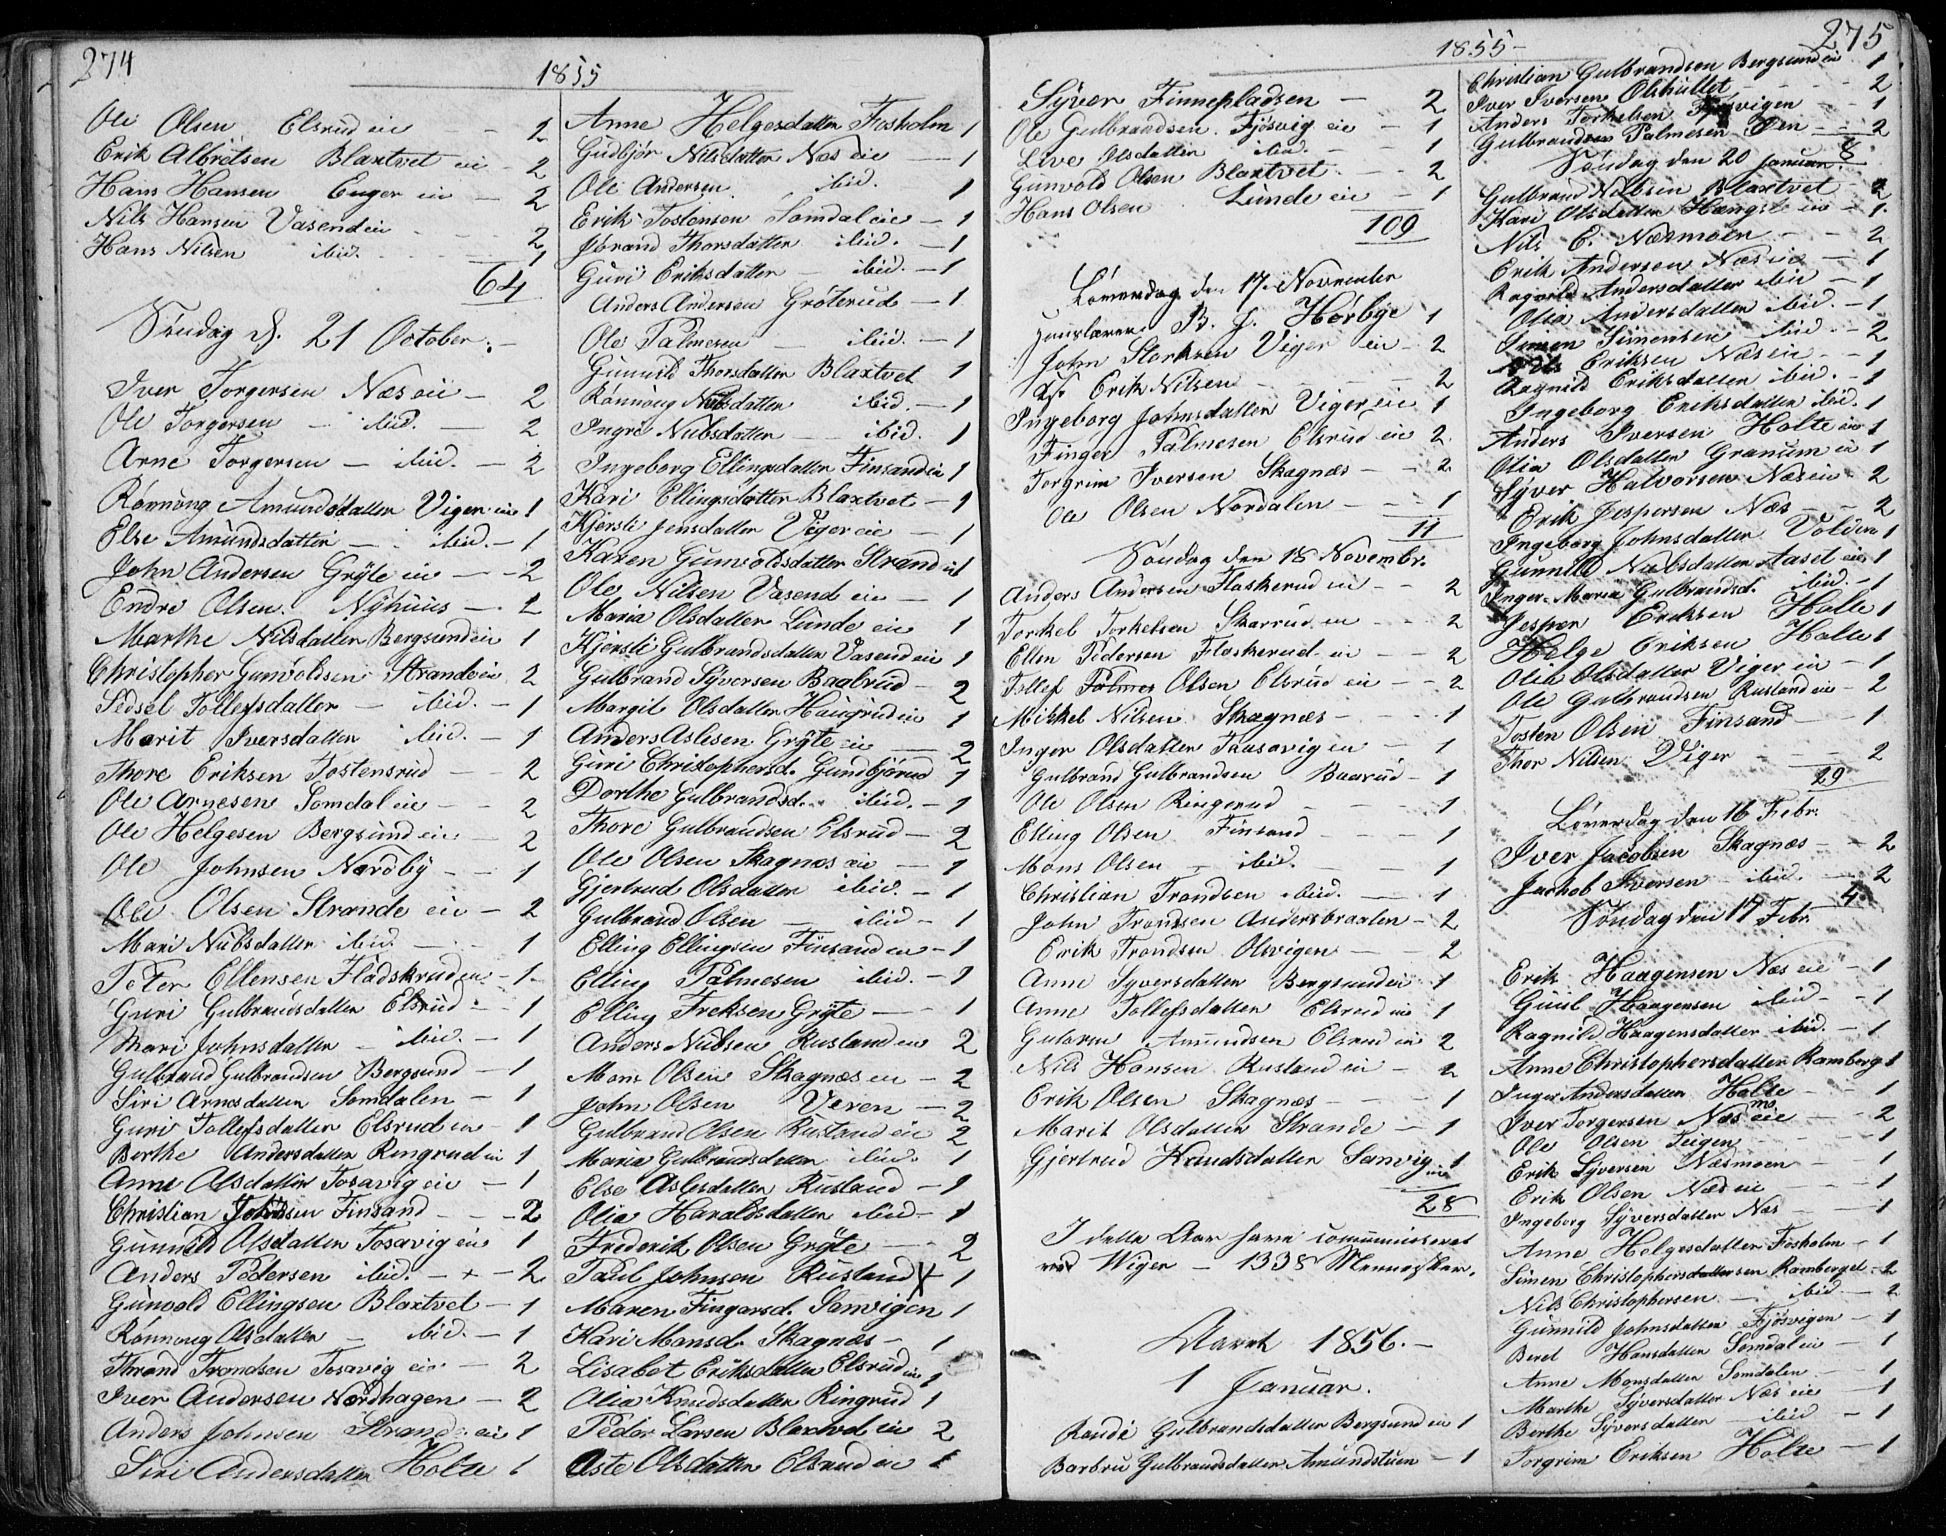 274
1855
Ole Olsen Elsrud eie - 2
Erik Albretsen Blaxtvet eie - 2
Hans Hansen Enger eie - 2
Nils Hansen Vasend eie - 2
Hans Nilsen ibid. - 1
64
Søndag d. 21 October. -
Iver Torgersen Næs eie - 2
Ole Torgersen - ibid. - 2
Arne Torgersen - ibid. - 2
Rønnoug Amundsdatter Viger eie 1
Else Amundsdatter - ibid. - 1
John Andersen Gryte eie - 2
Endre Olsen Nyhuus - 2
Marthe Nilsdatter Bergsund eie 1
Christopher Gunvoldsen Strand eie 2
Sidsel Tollefsdatter - ibid. - 1
Marit Iversdatter ibid. - 1
Thore Eriksen Tostensrud - 2
Ole Arnesen Somdal eie - 2
Ole Helgesen Bergsund eie - 2
Ole Johnsen Nærøby - 1
Ole Olsen Strande eie - 2
Mari Nubsdatter ibid. - 1
Peter Ellensen Fladskrud eie - 1
Guri Gulbrandsdatter Elsrud - 1
Mari Johnsdatter - ibid. - 1
Gulbrand Gulbrandsen Bergsund - 1
Siri Arnesdatter Somdalen - 1
Guri Tollefsdatter Elsrud eie - 1
Berthe Andersdatter Ringrud eie 1
Anne Olsdatter Tosavig eie - 1
Christian Johnsen Finsand - - 2
Gunnild Olsdatter Tosavig eie 1
Anders Pedersen ibid. - + - 2
Gunvald Ellingsen Blaxtvet - 1
Rønnoug Olsdatter - ibid. - 1
Thrond Trondsen Tosavig eie - 2
Iver Andersen Nordhagen - 2
Anders Johnsen Strand eie 1
Siri Andersdatter Holte 1
Anne Helgesdatter Fosholm 1
Gudbjør Nilsdatter Næs eie - 1
Ole Andersen ibid. 1
Erik Tostensen Somdal eie - 1
Jørand Thorsdatter ibid. - 1
Guri Eriksdatter - ibid. - 1
Anders Andersen Grøterud - 1
Ole Palmesen - ibid. - 1
Gunnild Thorsdatter Blaxtvet 1
Rønnoug Nubsdatter ibid. - 1
Ingri Nubsdatter - ibid. 1
Ingeborg Ellingsdatter Finsand eie 1
Kari Ellingsdatter Blaxtvet - 1
Kjersti Jensdatter Viger eie - 1
Karen Gunvoldsdatter Strand eie 1
Ole Nilsen Vasend eie - 1
Maria Olsdatter Lunde eie 1
Kjersti Gulbrandsdatter Vasend eie 1
Gulbrand Syversen Baabrud - 2
Margit Olsdatter Haugrud eie 1
Anders Aslesen Gryte eie - 2
Guri Christophersd. Gundbjørud 1
Dorthe Gulbrandsd. ibid. - 1
Thore Gulbrandsen Elsrud - 2
Ole Olsen Skagnæs eie - 1
Gjertrud Olsdatter ibid. - 1
Gulbrand Olsen - ibid - 1
Elling Ellingsen Finsand eie - 1
Elling Palmesen ibid. - 1
Elling Freksen Gryte - 1
Anders Nubsen Rusland eie 2
Mons Olsen Skagnæs eie - 2
John Olsen Veren - 2
Gulbrand Olsen Rustand eie 2
Maria Gulbrandsdatter ibid. 1
Else Aslesdatter Rusland - 1
Olia Haraldsdatter ibid - 1
Frederik Olsen Gryte - 2
Paul Johnsen Rusland 1
Maren Fingarsd. Sanvigen 1
Kari Monsd. Skagnæs - 1
Lisabet Eriksdatter Elsrud eie 1
Olia Knudsdatter Ringrud 1
Peder Larsen Blaxtvet eie 2
Aste Olsdatter Elsrud eie 1
1855 -
275
Syver Finnepladsen - 2
Ole Gulbrandsen Fjøsvig eie - 1
Live Olsdatter ibid. - 1
Gunvold Olsen Blaxtvet - 2
Hans Olsen Lunde eie - 1
109
Løverdag den 17. November
B. J. Hørbye 1
John Storksen Viger eie - 2
Erik Nilsen - 2
Ingeborg Johnsdatter Viger eie 1
Finger Palmesen Elsrud eie 2
Torgrim Iversen Skagnæs - - 2
Ole Olsen Nordalen - - 1
11
Søndag den 18 Novembr.
Anders Andersen Flaskerud eie - 2
Torkel Torkelsen Skarrud eie - 2
Ellen Pedersen Flaskerud eie - 2
Tollef Palmes Olsen Elsrud eie - 2
Mikkel Nilsen Skagnæs - - 1
Inger Olsdatter Taasavig eie - 1
Gulbrand Gulbrandsen Baarud - 1
Ole Olsen Ringerud - - 1
Elling Olsen Finsand - - 1
Mons Olsen - ibid. - 1
Christian Trondsen ibid. - 1
John Trondsen Andersbraaten - 2
Erik Trondsen Olsvigen - 2
Anne Syversdatter Bergsund eie 1
Anne Tollefsdatter Elsrud eie 1
Gutorm Amundsen Elsrud eie 2
Nils Hansen Rusland eie - 2
Erik Olsen Skagnæs - - 1
Marit Olsdatter Strande - 1
Gjertrud Knudsdatter Sanvig eie 1
28
I dette Aar have communiceret
ved Wiger - 1338 Mennesker.
Aaret 1856. -
1 Januar.
Randi Gulbrandsdatter Bergsund eie 1
Barbru Gulbrandsdatter Amundstuen - 1
Christian Gulbrandsen Bergsund eie 1
Iver Iversen Olshullet - - 2
Anders Torkelsen Fjøsvigen - 1
Gulbrandsen Palmesen Øen - 2
8
Søndag den 20 Januar.
Gulbrand Nilsen Blaxtvet - 2
Kari Olsdatter Hængsle eie - 1
Nils E. Næsmoen - - 2
Erik Andersen Næs eie - 1
Ragnild Andersdatter ibid - 1
Olia Andersdatter ibid. - 1
Simen Simensen - ibid - 2
Eriksen Næs eie - 1
Ragnild Eriksdatter ibid. - 1
Ingeborg Eriksdatter ibid. 1
Anders Iversen Holte eie 1
Olia Olsdatter Granum eie 1
Syver Halvorsen Næs eie - 2
Erik Jespersen Næs - - 2
Ingeborg Johnsdatter Volden 1
Gunnild Nubsdatter Aaset eie 1
Inger Maria Gulbrandsd. ibid. - 1
Jesper Eriksen Holte 1
Helge Eriksen Holte 1
Olia Olsdatter Viger eie - 1
Ole Gulbrandsen Rusland eie - 2
Tosten Olsen Finsand - 1
Thor Nilsen Viger - - 2
29
Løverdag den 16 Febr.
Iver Jacobsen Skagnæs - - 2
Jachob Iversen ibid. - 2
4
Søndag den 17 Febr.
Erik Haagensen Næs eie - 1
Guul Haagensen ibid - 1
Ragnild Haagensdatter ibid. - 1
Anne Christophersdatter Ramberg 1
Inger Andersdatter Holte - 1
Iver Torgersen Næs mo eie - 2
Ole Olsen Teigen - 1
Erik Syversen Næsmoen - 1
Erik Olsen Næs eie - 1
Ingeborg Syversdatter Næs - 1
Anne Helgesdatter Fosholm - 1
Simen Christophersdattersen Ramberget - 2
Nils Christophersen - ibid - 2
Gunnild Johnsdatter Fjøsvigen - 1
Beret Hansdatter Somdal eie - 1
Anne Monsdatter Somdalen - 1
Marthe Syversdatter Næs eie - 1
Berthe Syversdatter - ibid - 1
Torgrim Eriksen Holte - 1